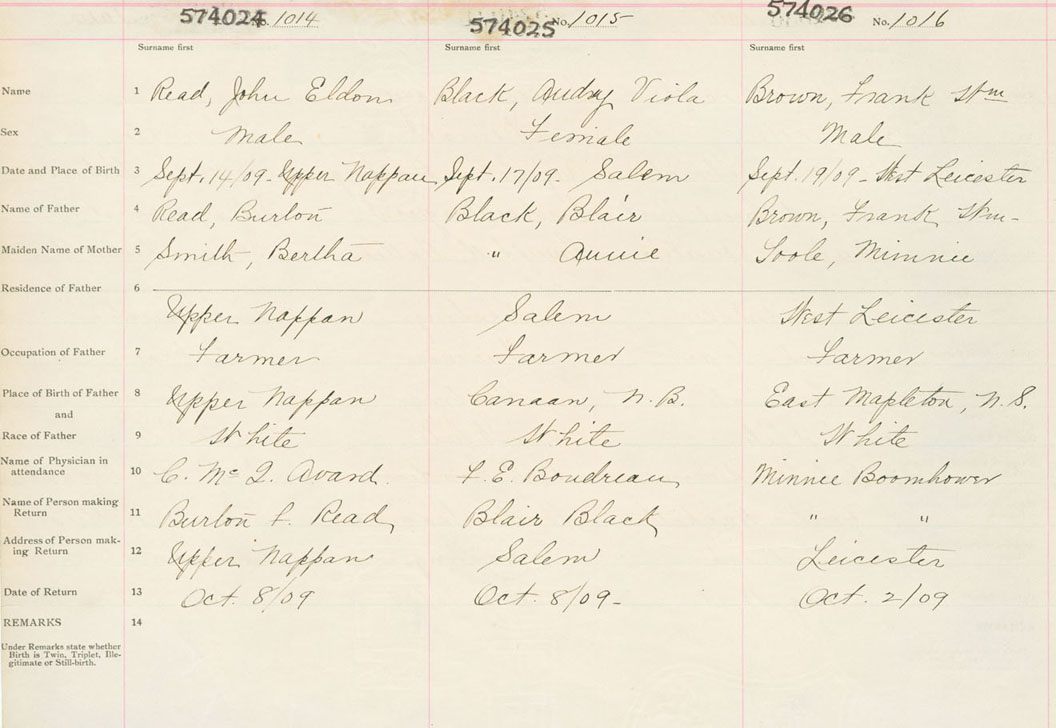 574024 No. 1014 574025 No. 1015 574026 No. 1016
Surname first Surname first Surname first
Name 1 Read, John Eldon Black, Audry Viola Brown, Frank Wm
Sex 2 Male Female Male
Date and Place of Birth 3 Sept. 14/09 - Upper Nappan Sept. 17/09 - Salem Sept. 19/09 - West Leicester
Name of Father 4 Read, Burton Black, Blair Brown, Frank Wm -
Maiden Name of Mother 5 Smith, Bertha " Annie Soole, Minnie
Residence of Father 6
Upper Nappan Salem West Leicester
Occupation of Father 7 Farmer Farmer Farmer
Place of Birth of Father 8 Upper Nappan Canaan, N.B. East Mapleton, N.S.
and
Race of Father 9 White White White
Name of Physician in
attendance 10 C. Mc Q. Avard. F. E. Boudreau Minnie Boomhower
Name of Person making
Return 11 Burton F. Read Blair Black " "
Address of Person mak-
ing Return 12 Upper Nappan Salem Leicester
Date of Return 13 Oct. 8/09 Oct. 8/09 - Oct. 2/09
REMARKS 14
Under Remarks state whether
Birth is Twin, Triplet, Ille-
gitimate or Still-birth.